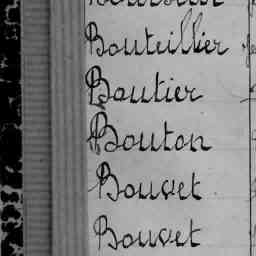 Bouteillier
Boutier
Bouton
Bouvet
Bouvet